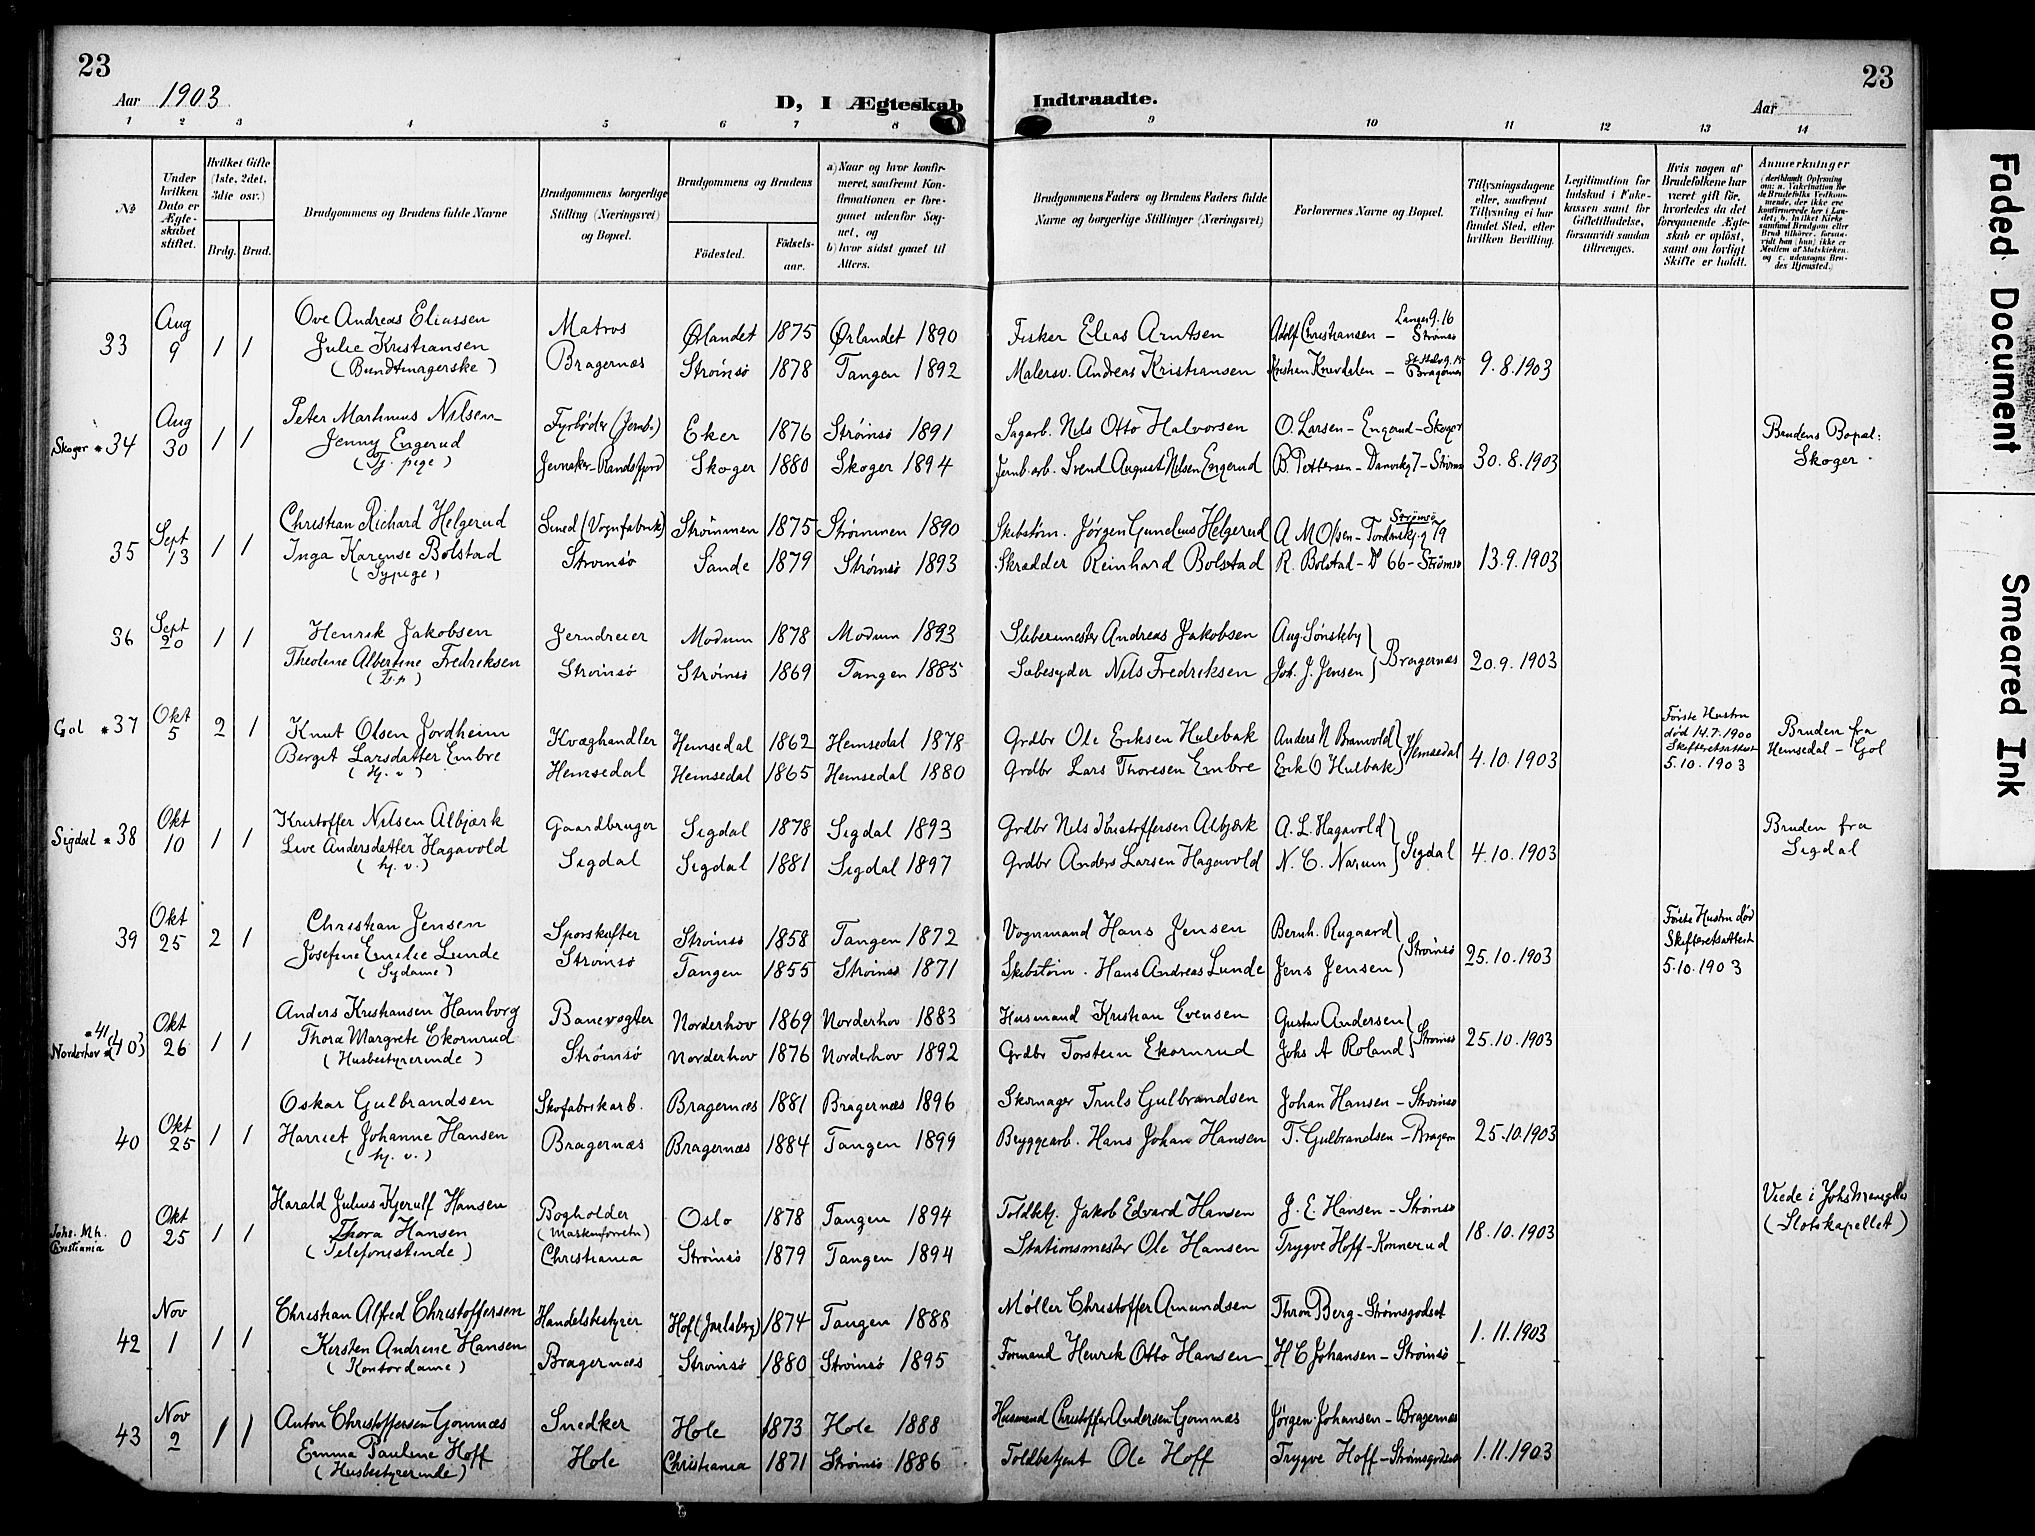 23
23
Aar 1903
D, I Ægteskab
Indtraadte.
Aar
1 2 3 4 5 6 7 8 9 10 11 12 13 14
№
Under hvilken Dato er Ægteskabet stiftet.
Hvilket Gifte (1ste, 2det, 3die osv.)
Brdg. Brud.
Brudgommens og Brudens fulde Navne
Brudgommens borgerlige Stilling (Næringsvei) og Bopæl.
Brudgommens og Brudens
Fødested.
Fødsels-aar.
a) Naar og hvor konfirmeret, samfremt Konfirmationen er foregaaet udenfor Sognet, og
b) hvor sidst gaaet til Alters.
Brudgommens Faders og Brudens Faders fulde Navne og borgerlige Stillinger (Næringsvei)
Forlovernes Navne og Bopæl.
Tillysningsdagene eller, saafremt Tillysning ei har fundet Sted, efter hvilken Bevilling.
Legitimation for Indskud i Enkekassen samt for Giftetilladelse, forsaavidt saadan tiltrænges.
Hvis nogen af Brudefolkene har været gift før, hvorledes da det foregaaende Ægteskab er opløst, samt om lovligt Skifte er holdt.
Anmerkninger
33 Aug 9 1 1
Ove Andreas Eliassen
Julie Kristiansen
(Bundtmagerske)
Matros
Bragernæs
Ørlandet 1875 Ørlandet 1890
Strømsø 1878 Tangen 1892
Fisker Elias Arntsen
Malersv. Andreas Kristiansen
Adolf Christiansen – Langeg. 16 Strømsø
Kristian Knivdalen – Bragernæs
9.8.1903
Skoger * 34 Aug 30 1 1
Peter Martinius Nilsen
Jenny Engerud
(Tj. pige)
Fyrbøder (Jernb.)
Jevnaker-Randsfjord
Eker 1876 Strømsø 1891
Skoger 1880 Skoger 1894
Sagarb. Nils Otto Halvorsen
Jernb.arb. Svend August Nilsen Engerud
O. Larsen – Engerud – Skoger
B. Pettersen – Danvikg 7 – Strømsø
30.8.1903
Brudens Bopæl: Skoger.
35 Sept 13 1 1
Christian Richard Helgerud
Inga Karense Bolstad
(Sypige)
Smed (Vognfabrik)
Strømsø
Strømmen 1875 Strømmen 1890
Sande 1879 Strømsø 1893
Skibstøm. Jørgen Gundius Helgerud
Skrædder Reinhard Bolstad
A M Olsen – Tordenskj.g 79 Strømsø
R. Bolstad – Do 66 – Strømsø
13.9.1903
36 Sept 20 1 1
Henrik Jakobsen
Theoline Albertine Fredriksen
(Tj.p)
Jerndreier
Strømsø
Modum 1878 Modum 1893
Strømsø 1869 Tangen 1885
Slibermester Andreas Jakobsen
Sæbesyder Nils Fredriksen
Aug. Sønsteby
Joh. J. Jensen
Bragernæs
20.9.1903
Gol * 37 Okt 5 2 1
Knut Olsen Jordheim
Bergit Larsdatter Embre
(Hj. v)
Kvæghandler
Hemsedal
Hemsedal 1862 Hemsedal 1878
Hemsedal 1865 Hemsedal 1880
Grdbr Ole Eriksen Hulebak
Grdbr Lars Thoresen Embre
Anders N Branvold
Erik O Hulbak
Hemsedal
4.10.1903
Første Hustru død 14.7.1900
Skifteretsattest 5.10.1903
Bruden fra Hemsedal – Gol
Sigdal * 38 Okt 10 1 1
Kristoffer Nilsen Albjærk
Live Andersdatter Hagavold
(hj. v.)
Gaardbruger
Sigdal
Sigdal 1878 Sigdal 1893
Sigdal 1881 Sigdal 1897
Grdbr Nils Kristoffersen Albjærk
Grdbr Anders Larsen Hagavold
A. L. Hagavold
N. C. Narum
Sigdal
4.10.1903
Bruden fra Sigdal
39 Okt 25 2 1
Christian Jensen
Josefine Emilie Lunde
(Sydame)
Sporskifter
Strømsø
Strømsø 1858 Tangen 1872
Tangen 1855 Strømsø 1871
Vognmand Hans Jensen
Skibstøm. Hans Andreas Lunde
Bernh. Rugaard
Jens Jensen
Strømsø
25.10.1903
Første Hustru død
Skifteretsattest
5.10.1903
* 41 Norderhov (40) Okt 26 1 1
Anders Kristiansen Hamborg
Thora Margrete Ekornrud
(Husbestyrerinde)
Banevogter
Strømsø
Norderhov 1869 Norderhov 1883
Norderhov 1876 Norderhov 1892
Husmand Kristian Evensen
Grdbr Torstein Ekornrud
Gustav Andersen
Johs A Roland
Strømsø
25.10.1903
40 Okt 25 1 1
Oskar Gulbrandsen
Harriet Johanne Hansen
(hj. v.)
Skofabrikarb.
Bragernæs
Bragernæs 1881 Bragernæs 1896
Bragernæs 1884 Tangen 1899
Skomager Truls Gulbrandsen
Bryggearb. Hans Johan Hansen
Johan Hansen – Strømsø
T. Gulbrandsen – Bragern
25.10.1903
Johs. Mh. Christiania 0 Okt 25 1 1
Harald Julius Kjerulf Hansen
Thora Hansen
(Telefonistinde)
Bogholder
(Maskinforretn)
Christiania
Oslo 1878 Tangen 1894
Strømsø 1879 Tangen 1894
Toldbetj. Jakob Edvard Hansen
Stationsmester Ole Hansen
J. E. Hansen – Strømsø
Trygve Hoff – Konnerud
18.10.1903
Viede i Johs Menighed
(Slotskapellet)
42 Nov 1 1 1
Christian Alfred Christoffersen
Kirsten Andrine Hansen
(Kontordame)
Handelsbestyrer
Bragernæs
Hof (Jarlsberg) 1874 Tangen 1888
Strømsø 1880 Strømsø 1895
Møller Christoffer Amundsen
Formand Henrik Otto Hansen
Thron Berg – Strømsgodset
H C Johansen – Strømsø
1.11.1903
43 Nov 2 1 1
Anton Christoffersen Gomnæs
Emma Pauline Hoff
(Husbestyrerinde)
Snedker
Hole
Hole 1873 Hole 1888
Christiania 1871 Strømsø 1886
Husmand Christoffer Andersen Gomnæs
Toldbetjent Ole Hoff
Jørgen Johansen – Bragernæs
Trygve Hoff – Strømsgodset
1.11.1903
Faded Document
Smeared Ink